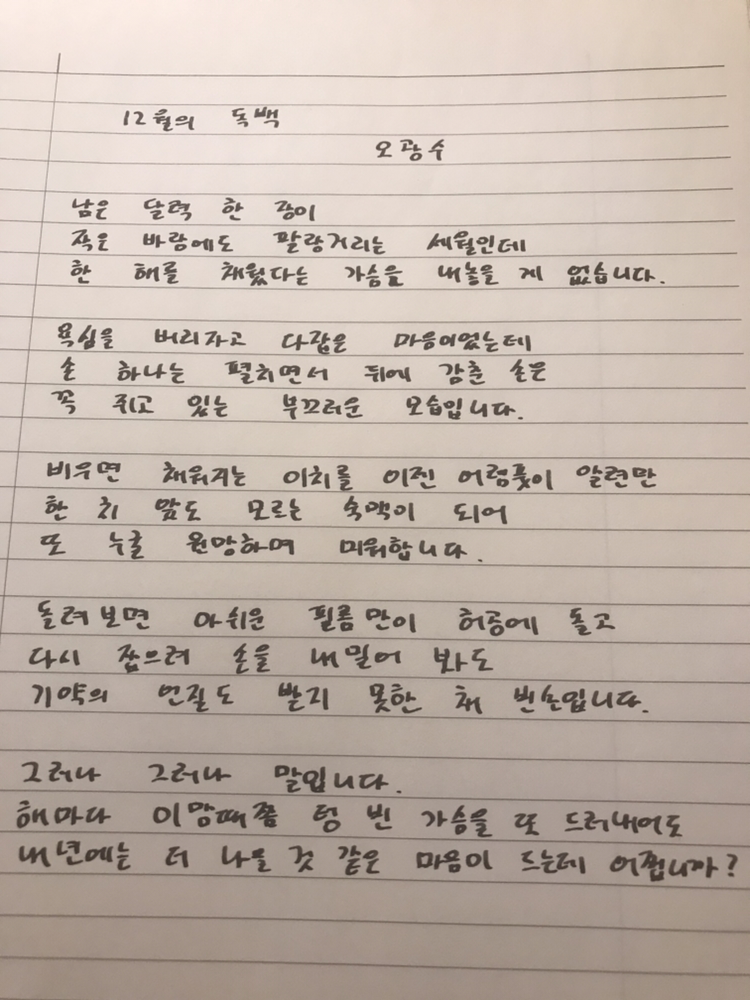 12월의 독백
오광수
남은 달력 한 장이
작은 바람에도 팔랑거리는 세월인데
한 해를 채웠다는 가슴을 내놓을 게 없습니다.
욕심을 버리자고 다잡은 마음이었는데
손 하나는 펼치면서 뒤에 감춘 손은
꼭 쥐고 있는 부끄러운 모습입니다.
비우면 채워지는 이치를 이젠 어렴풋이 알련만
한 치 앞도 모르는 숙맥이 되어
또 누굴 원망하며 미워합니다.
돌려보면 아쉬운 필름만이 허공에 돌고
다시 잡으려 손을 내밀어 봐도
기약의 언질도 받지 못한 채 빈손입니다.
그러나 그러나 말입니다.
해마다 이맘때쯤 텅 빈 가슴을 또 드러내어도
내년에는 더 나을 것 같은 마음이 드는데 어쩝니까?